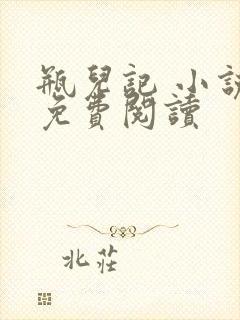 瓶兒記 小説
免費閱讀
北莊